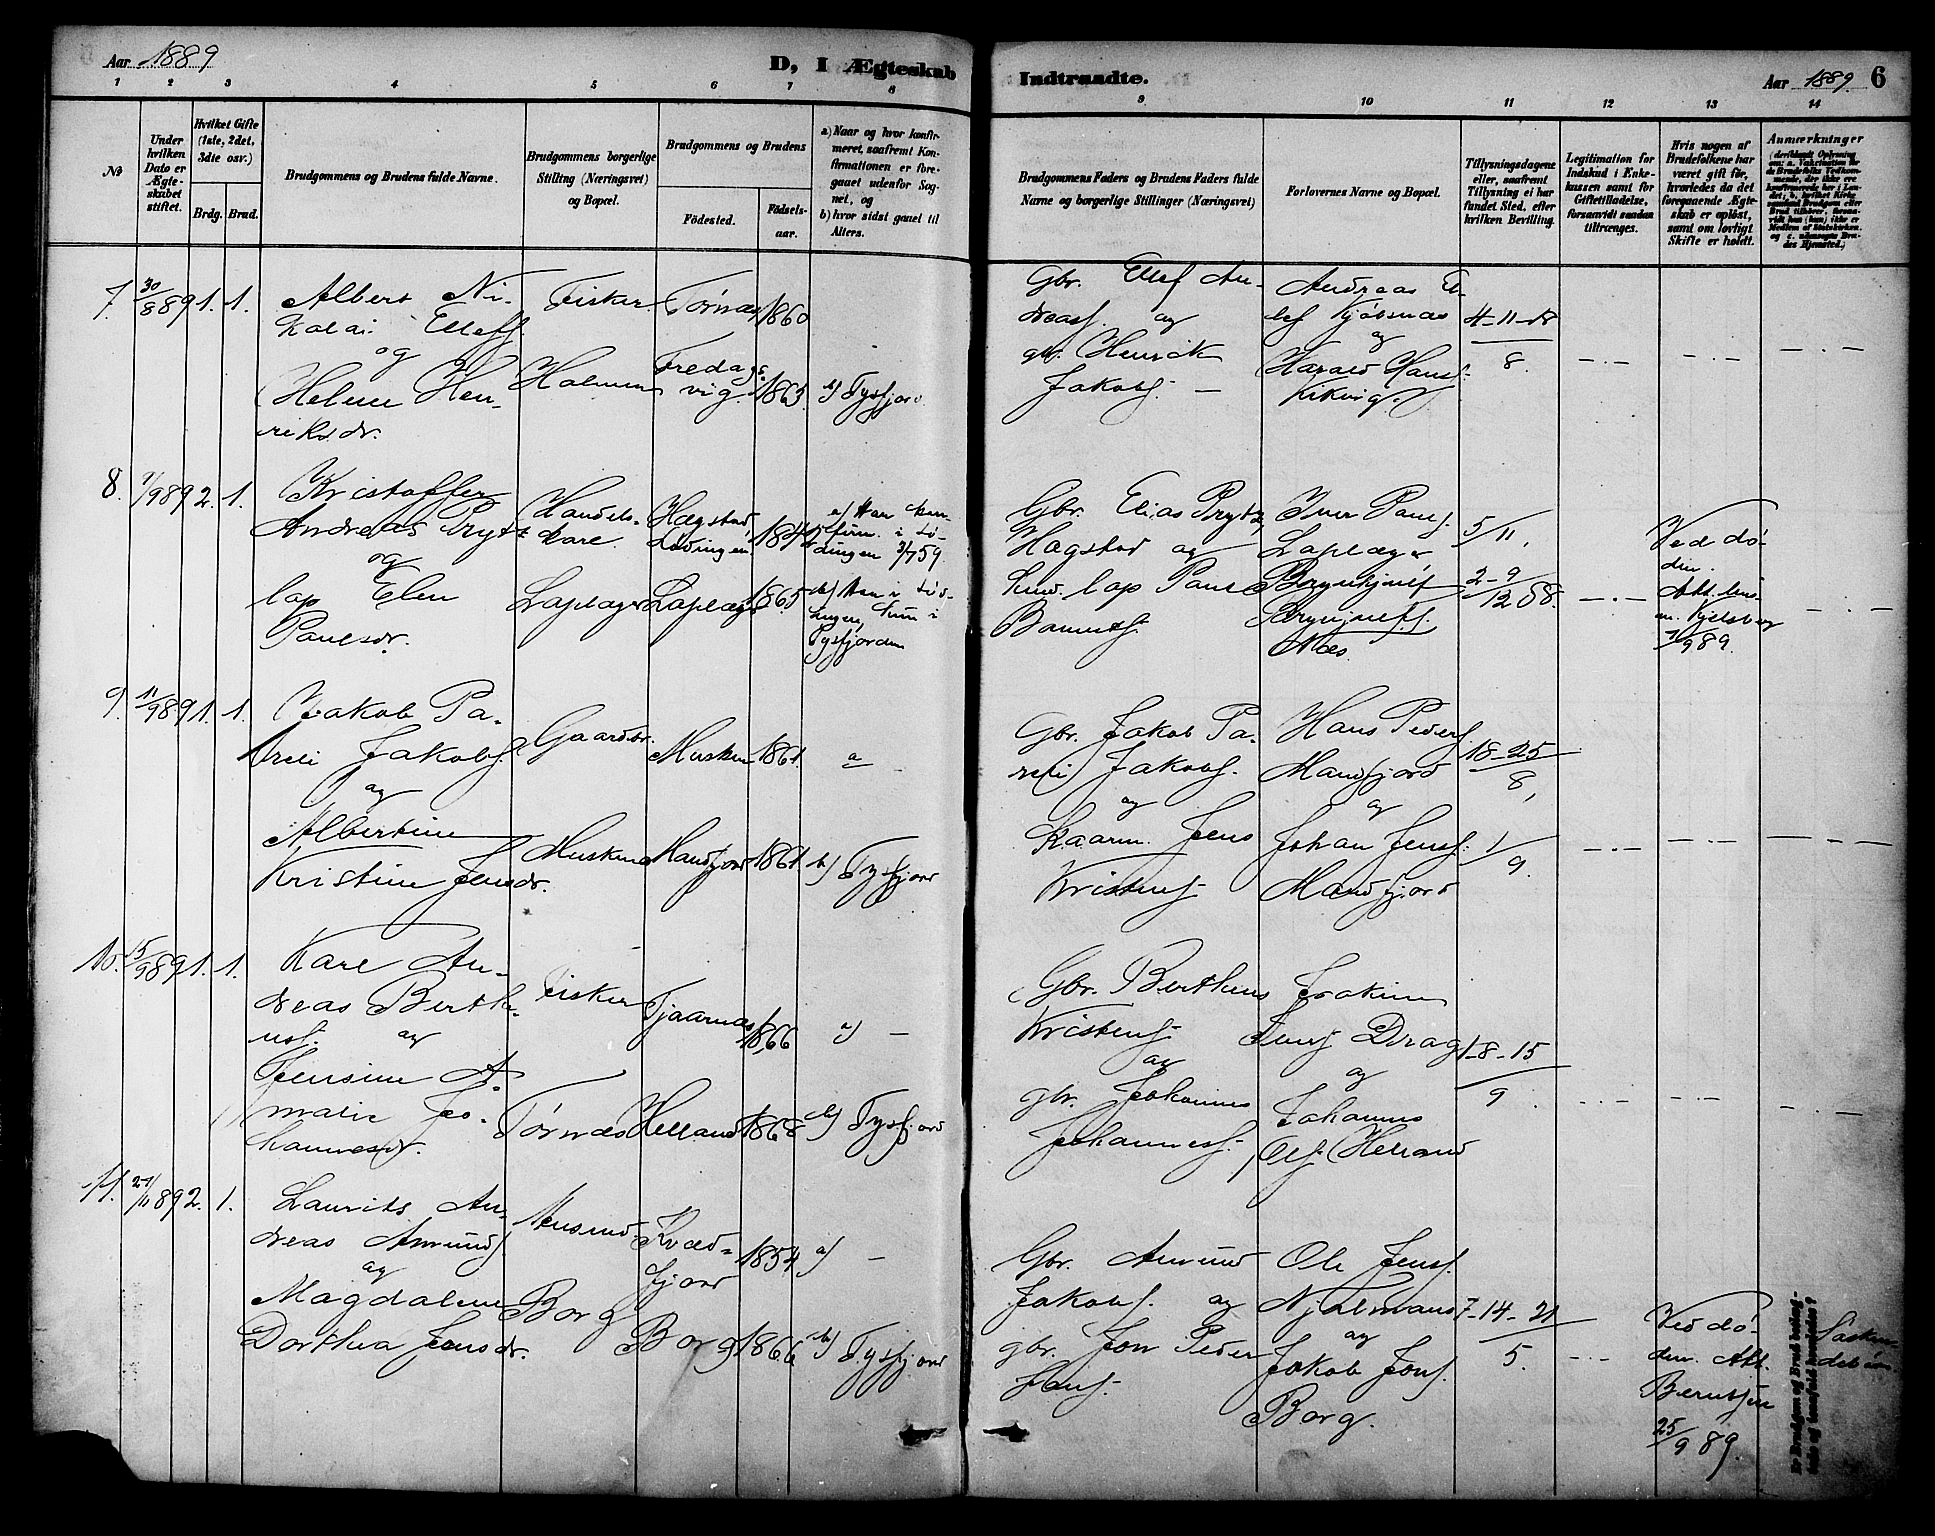 Aar 1889
D, I Ægteskab Indtraadte.
Aar 1889. 6
1 2 3 4 5 6 7 8 9 10 11 12 13 14
No
Under hvilken Dato er Ægteskabet stiftet.
Hvilket Gifte (1ste, 2det, 3dte osv.)
Brdg. Brud.
Brudgommens og Brudens fulde Navne.
Brudgommens borgerlige Stilling (Næringsvei) og Bopæl.
Brudgommens og Brudens
Fødested. Fødselsaar.
a) Naar og hvor konfirmeret, saafremt Konfirmationen er foregaaet udenfor Sognet, og
b) hvor sidst gaaet til Alters.
Brudgommens Faders og Brudens Faders fulde Navne og borgerlige Stillinger (Næringsvei)
Forlovernes Navne og Bopæl.
Tillysningsdagene eller, saafremt Tillysning ei har fundet Sted, efter hvilken Bevilling.
Legitimation for Indskud i Enkekassen samt for Giftetilladelse, forsaavidt saadan tiltrænges.
Hvis nogen af Brudefolkene har været gift før, hvorledes da det foregaaende Ægteskab er opløst, samt om lovligt Skifte er holdt.
Anmærkninger
7. 30/8 89 1. 1.
Albert Ni-
kolai Elleff.
og
Helene Hen-
riksdr.
Fisker
Holmen
Tørnes 1860
Fredags-
vig. 1863
b) Tysfjord.
Gbr. Ellef An-
dreass. og
gbr. Henrik
Jakobs. —
Andreas El-
lefs Kjøbsnæs
og
Harald Hans.
Kikvig.
4-11-18
8.
8. 7/9 89 2. 1.
Kristoffer
Andreas Prytz
og
lap Elen
Paulsdr.
Handels-
kare.
Laplæger
Hægstad
Lødingen. 1844
Laplæger 1865
a) Han kon-
firm. i Lø-
dingen 3/7 59.
b) Han i Lød-
ingen, hun i
Tysfjorden
Gbr. Elias Prytz,
Hagstad og
lap Paul
Iver Pauls.
Laplæger
Næs.
5/11,
2-9
12 88.
Ved dø-
den.
Att. lens-
m. Kjelsberg
7/9 89.
9. 11/9 89 1. 1.
Jakob Pa-
reli Jakobs.
og
Albertine
Kristine Jensdr.
Gaardbr.
Musken
Musken 1861.
Mandfjord 1861.
a —
b) Tysfjord
Gbr. Jakob Pa-
reli Jakobs.
og
Kaarm. Jens
Kristens.
Hans Peders.
Mandfjord
og
Johan Jens.
Mandfjord
18-25
8,
1/9.
10. 15/9 89 1. 1.
Karl An-
dreas Berthe-
us. og
Jensine A-
malie Jo-
hannesdr.
Fisker
Tørnæs
Tjaarnæs 1866
Helland 1868
a) —
b) Tysfjord
Gbr. Bertheus
Kristens.
og
gbr. Johannes
Johanness.
Joakim
Jens. Drag
og
Johannes
Ols. Helland
1-8-15
9
11. 27/11 89 2. 1.
Laurits An-
dreas Amunds.
og
Magdalene
Dorthea Jonsdr.
Borg
Kvæd-
fjord 1854
Borg 1866
a) —
b) Tysfjord
Gbr. Amund
Jakobs. og
gbr. Jon Peder
Jens.
Ole Jens.
og
Jakob Jons.
Borg.
7-14-21
5.
Ved dø-
den. Att.
Berntsen
25/9 89.
Er Brudgom og Brud beslægtede og i saafald hvorledes?
Søsken-
debørn